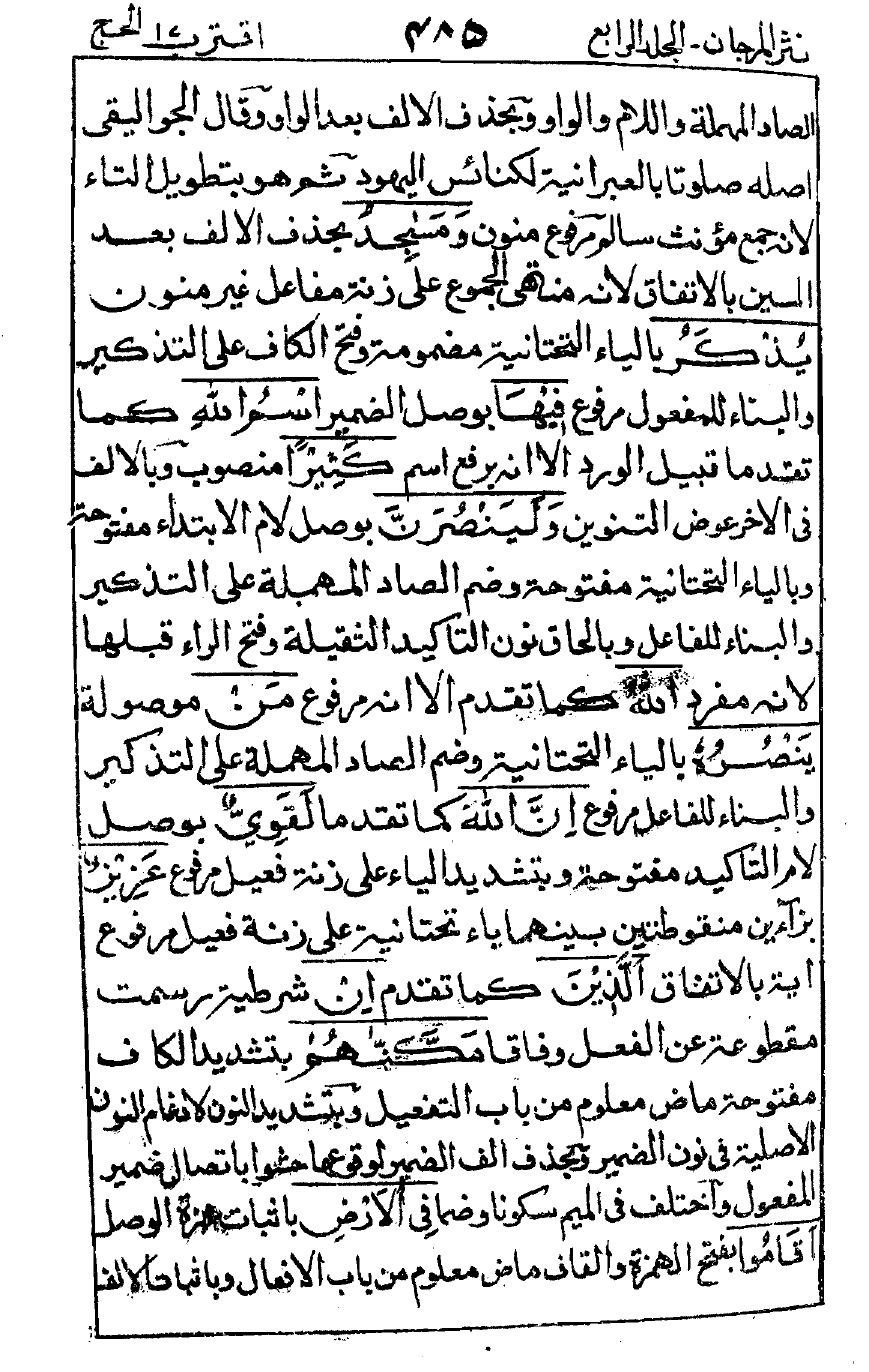 نثر المرجان - المجلد الرابع ٤٨٥ اقترب ١٧ الحج
الصاد المهملة واللام والواو وبحذف الالف بعد الواو وقال الجواليقى
اصله صلوتا بالعبرانية لكنائس اليهود ثم هو بتطويل التاء
لانه جمع مؤنث سالم مرفوع منون وَمَسٰجِدُ بحذف الالف بعد
السين بالاتفاق لانه منتهى الجموع على زنة مفاعل غير منون
يُذْكَرُ بالياء التحتانية مضمومة وفتح الكاف على التذكير
والبناء للمفعول مرفوع فِيْهَا بوصل الضمير اسْمُ اللّٰهِ كما
تقدم ما قبيل الورد الا انه برفع اسم كَثِيْرًا منصوب وبالالف
فى الاخر عوض التنوين وَلَيَنْصُرَنَّ بوصل لام الابتداء مفتوحة
وبالياء التحتانية مفتوحة وضم الصاد المهملة على التذكير
والبناء للفاعل وبالحاق نون التاكيد الثقيلة وفتح الراء قبلها
لانه مفرد اللّٰهُ كما تقدم الا انه مرفوع مَنْ موصولة
يَنْصُرُهٗ بالياء التحتانية وضم الصاد المهملة على التذكير
والبناء للفاعل مرفوع اِنَّ اللّٰهَ كما تقدما لَقَوِيٌّ بوصل
لام التاكيد مفتوحة وبتشديد الياء على زنة فعيل مرفوع عَزِيْزٌ
بزاءين منقوطتين بينهما ياء تحتانية على زنة فعيل مرفوع
اية بالاتفاق اَلَّذِيْنَ كما تقدم اِنْ شرطية رسمت
مقطوعة عن الفعل وفاقا مَكَّنّٰهُمْ بتشديد الكاف
مفتوحة ماض معلوم من باب التفعيل وبتشديد النون لادغام النون
الاصلية فى نون الضمير وبحذف الف الضمير لوقوعها حشوا باتصال ضمير
المفعول واختلف فى الميم سكونا وضما فِى الْاَرْضِ باثبات همزة الوصل
اَقَامُوا بفتح الهمزة والقاف ماض معلوم من باب الافعال وباثبات الالف